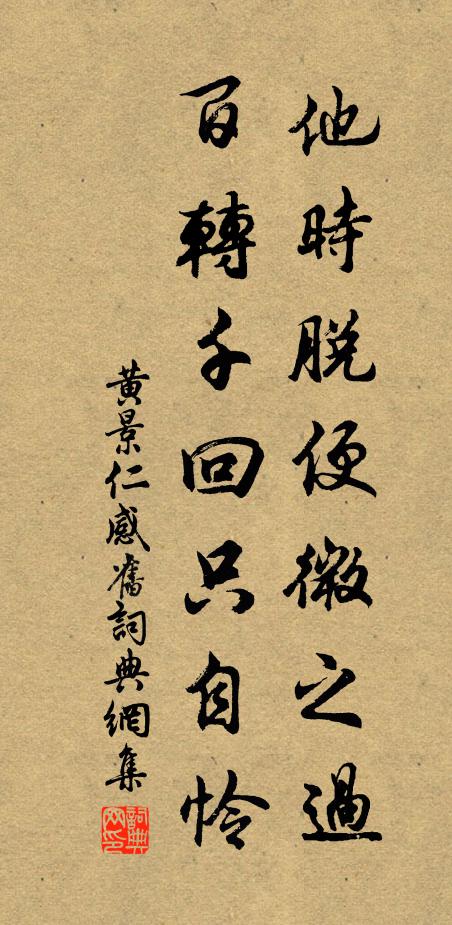 他時脫便微之過
百轉千回只自怜
黃景仁感舊詞典網集
詞典网印